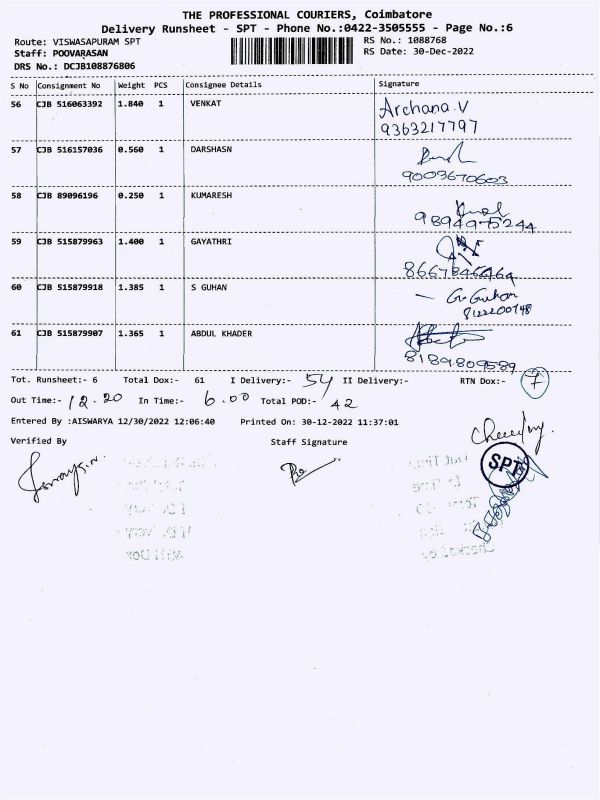 THE PROFESSIONAL COURIERS, Coimbatore
Delivery Runsheet - SPT - Phone No.:0422-3505555 - Page No.:6
Route: VISWASAPURAM SPT RS No.: 1088768
Staff: POOVARASAN RS Date: 30-Dec-2022
DRS No.: DCJB108876806
S No Consignment No Weight PCS Consignee Details Signature
56 CJB 516063392 1.840 1 VENKAT Archana.V
9363217797
57 CJB 516157036 0.560 1 DARSHASN
9003670603
58 CJB 89096196 0.250 1 KUMARESH
9894975244
59 CJB 515879963 1.400 1 GAYATHRI
60 CJB 515879918 1.385 1 S GUHAN - G. Guhan
8122200748
61 CJB 515879907 1.365 1 ABDUL KHADER
8189809589
Tot. Runsheet:- 6 Total Dox:- 61 I Delivery:- 54 II Delivery:- RTN Dox:- 7
Out Time:- 12.20 In Time:- 6.00 Total POD:- 42
Entered By :AISWARYA 12/30/2022 12:06:40 Printed On: 30-12-2022 11:37:01
Verified By Staff Signature
SPT